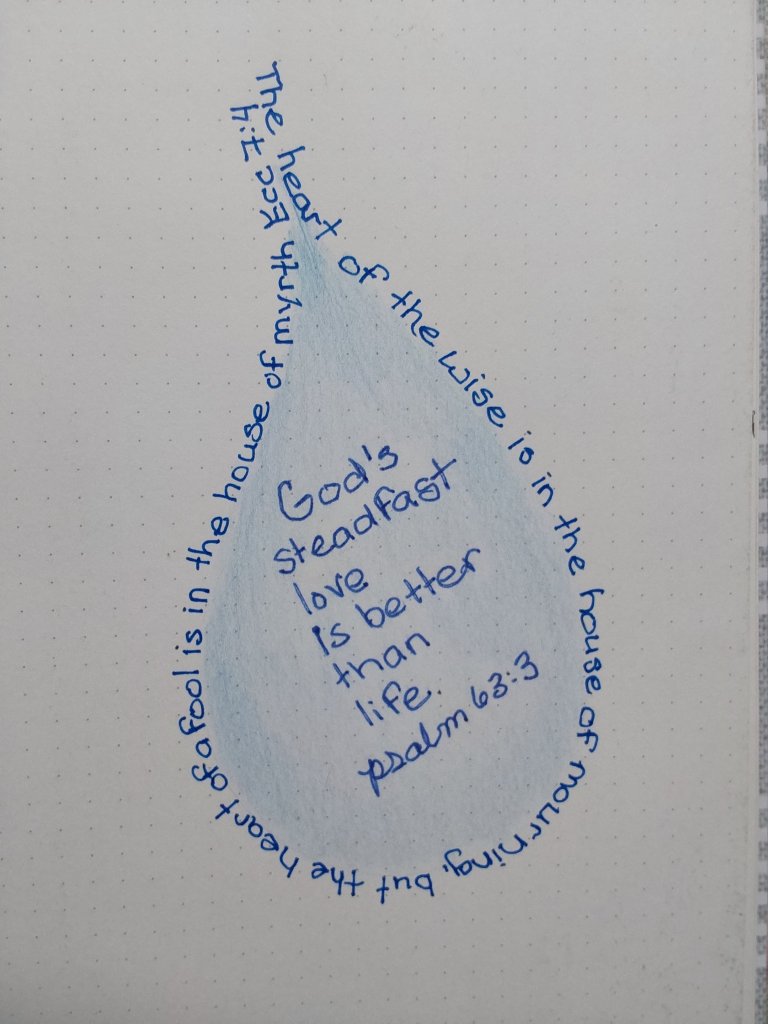 The heart of the wise is in the house of mourning, but the heart of a fool is in the house of myrth Ecc 7:4
God's
steadfast
love
is better
than
life.
psalm 63:3